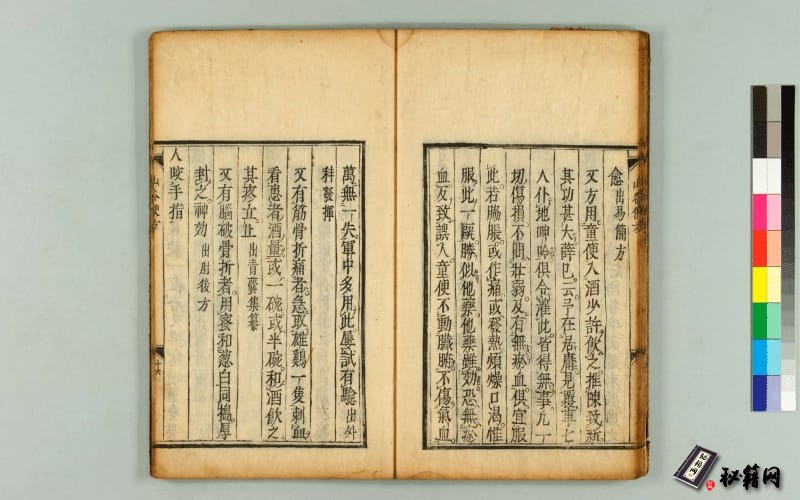 愈出易簡方
又方用童便入酒少許飲之推陳致新
其功甚大薛己云予在居庸見覆車七
人仆地呻吟俱令灌此皆得無事凡一
切傷損不問壯弱及有無瘀血俱宜服
此若脇脹或作痛或發熱煩燥口渴惟
服此一甌勝似他藥他藥雖効恐無瘀
血反致誤人童便不動臟腑不傷氣血
萬無一失軍中多用此屢試有驗出外
科發揮
又有筋骨折痛者急取雄鷄一隻刺血
看患者酒量或一碗或半碗和酒飲之
其疼立止出青囊集纂
又有腦破骨折者用蜜和葱白同搗厚
封之神効出肘後方
人咬手指
便方
十六
秘籍网